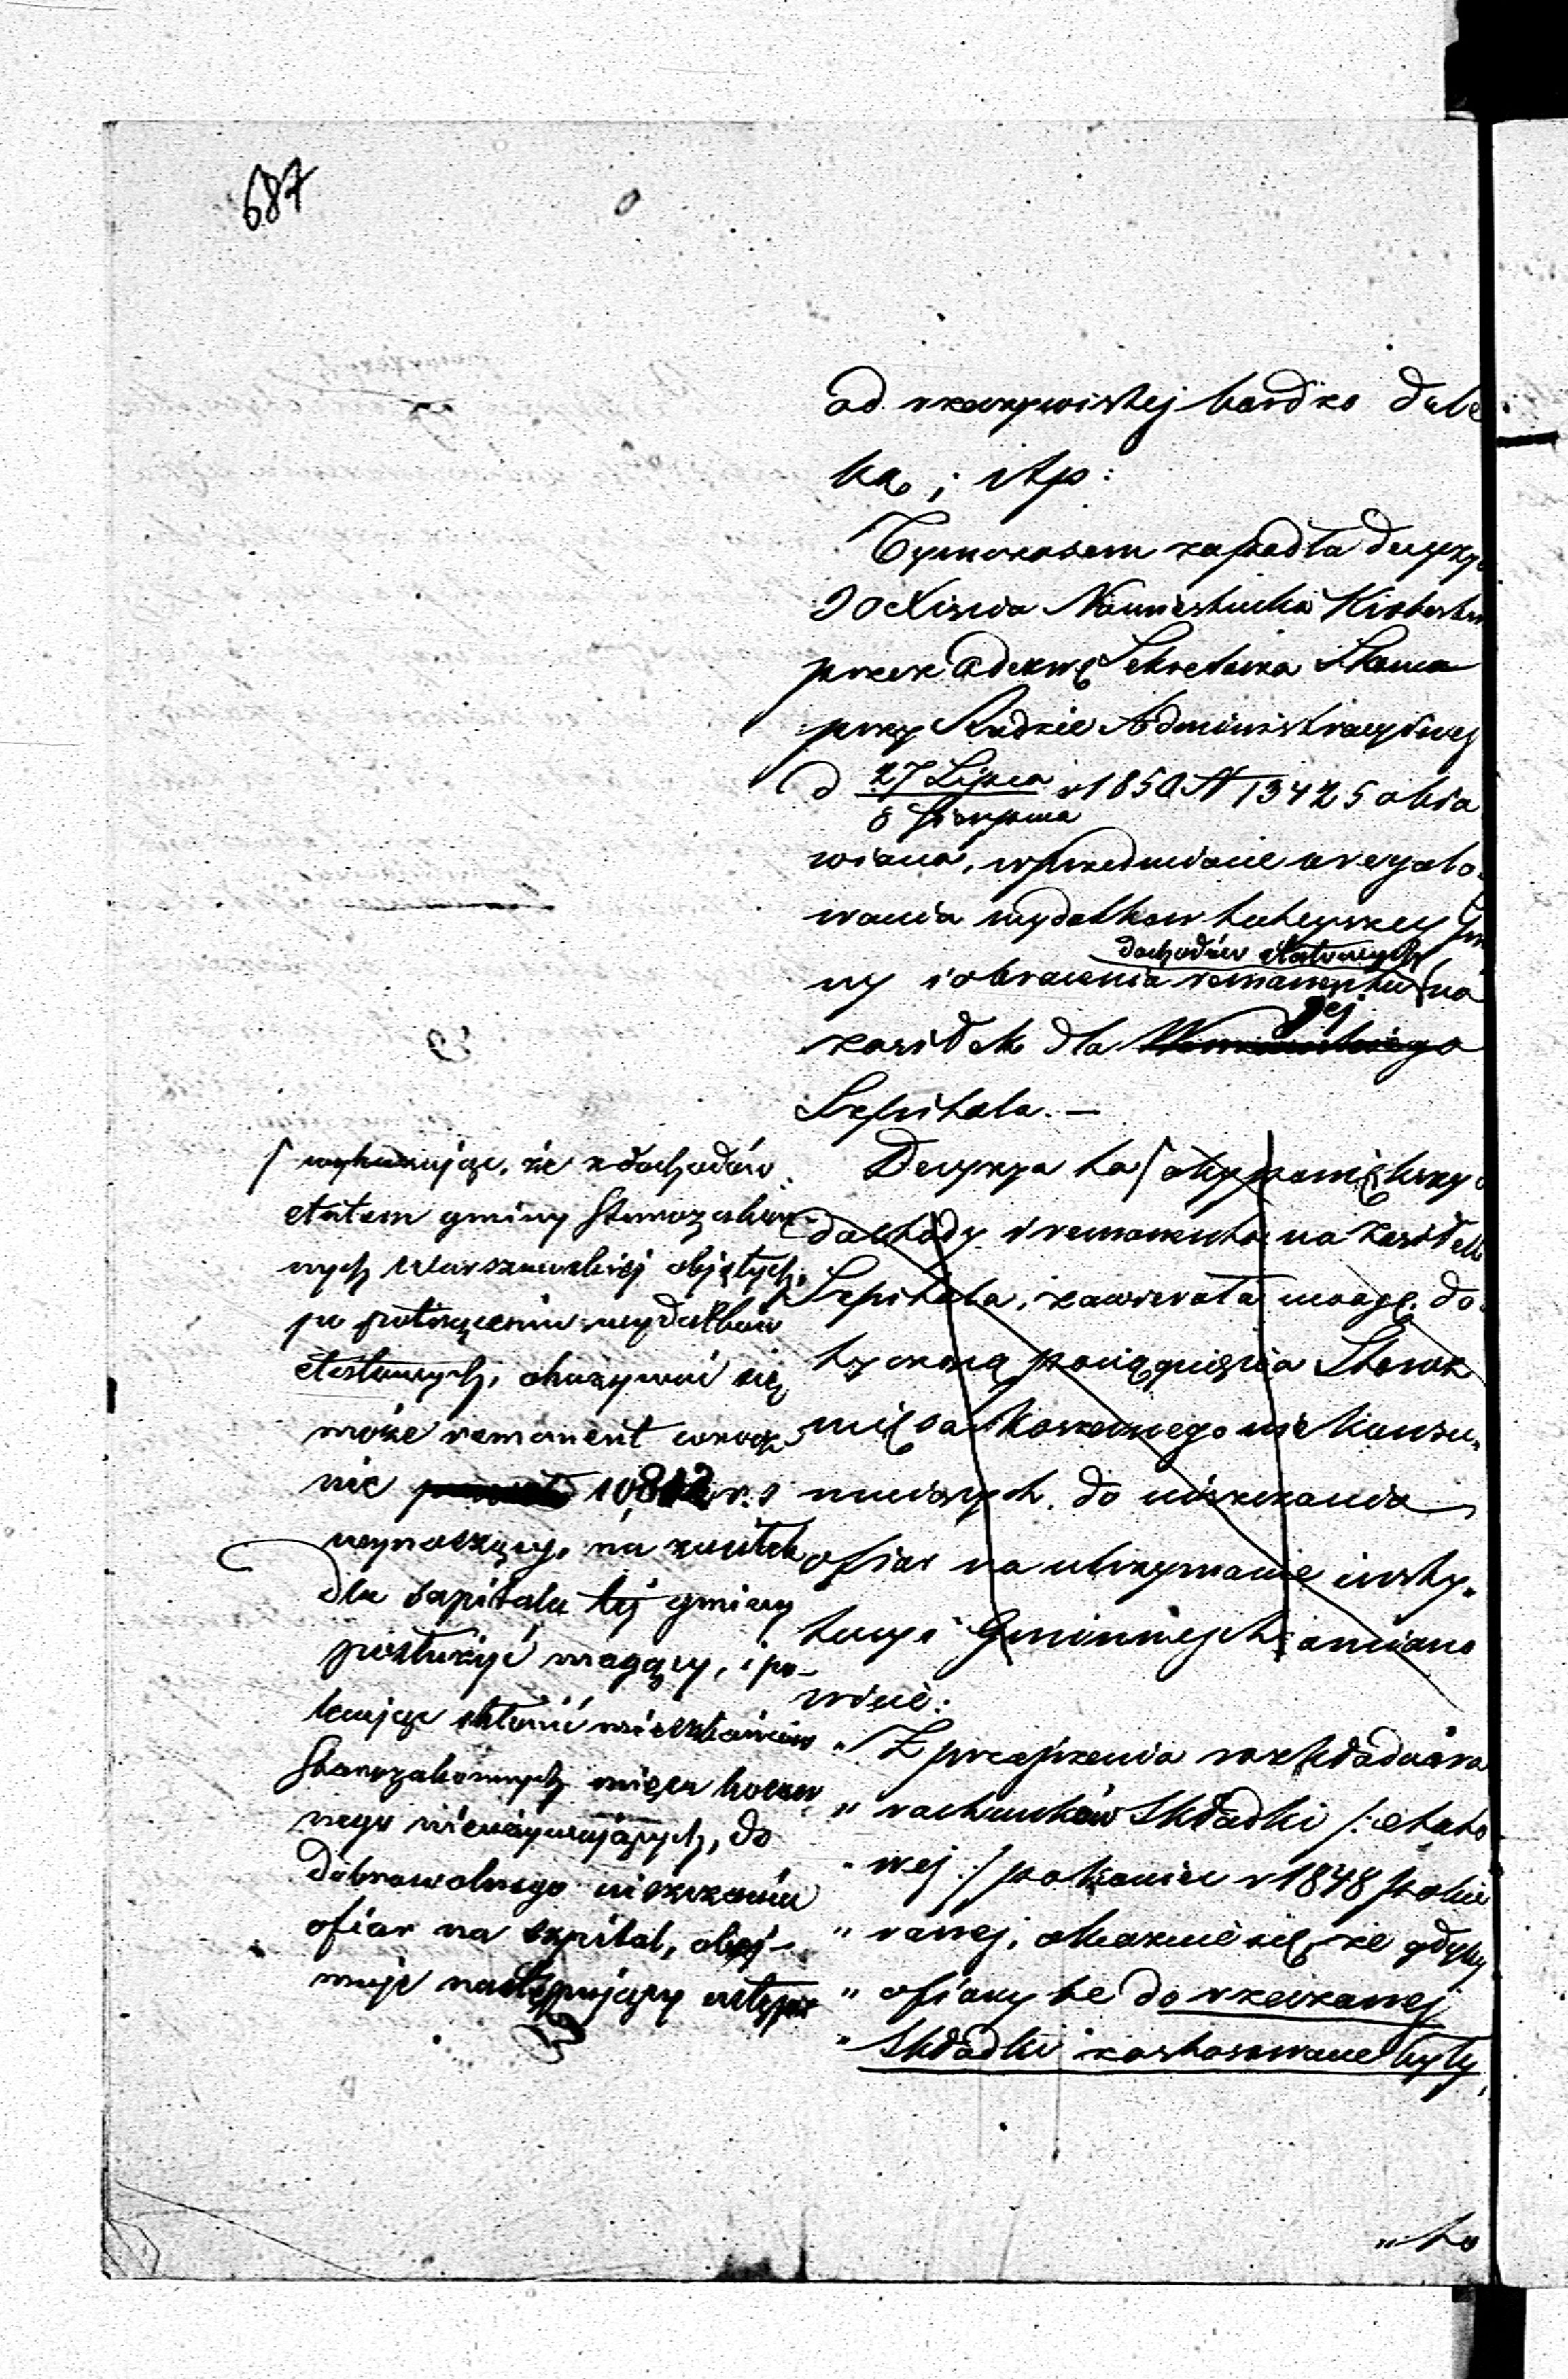 687
od rzeczywistej bardzo dale
ką; itp:
Tymczasem zapadła decyzya
JO Xięcia Namiestnika Królestwa
przez Odezwę Sekretarza Stanu
przy Radzie Administracyjnej
d 27 Lipca
8 Sierpnia
r 1850 N 13425 obia
wiona, w przedmiocie uregulo-
wania wydatków tutejszey Gmi
dochodów etatowych
ny i obrócenia remanentu na
jej
zasiłek dla
Szpitala. —
Decyzya ta aby powiększyć
dochody i remanenta na zasiłek
Szpitala, zawierała mogę do-
tyczącą pociągnięcia Staroz
mięsa Koszernego nie konsu-
mujących do uiszczania
ofiar na utrzymanie insty-
tucyi Gminnych a miano
wicie:
„ Z przejrzenia rozkładu ora
„ rachunków Składki /: etato
„ wej :/ po koniec r 1848 pobie
„ ranej, okazuie się, że gdyby
„ ofiary te do rzeczonej
„ Składki zastosowane były,
„ to
wykazując, że z dochodów
etatem gminy Starozakon-
nych Warszawskiej objętych,
po potrąceniu wydatków
etatowych, okazywać się
może remanent corocz
nie 10812 r. s
wynoszący, na zasiłek
dla szpitala tej gminy
posłużyć mogący, i po-
lecając skłonić mieszkańców
Starozakonnych mięsa koszer
nego nieużywających, do
dobrowolnego uiszczania
ofiar na szpital, obej-
muje następujący ustęp